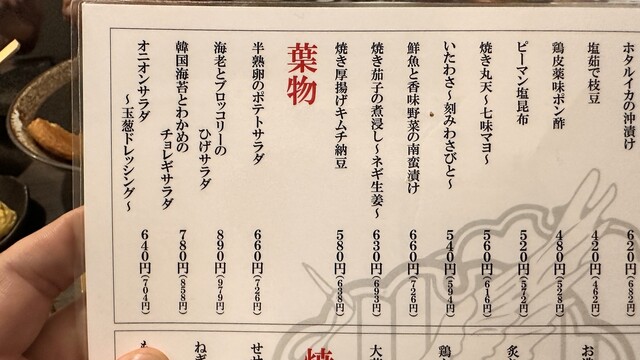 ホタルイカの沖漬け 620円(682円)
塩茹で枝豆 420円(462円)
鶏皮薬味ポン酢 480円(528円)
ピーマン塩昆布 520円(572円)
焼き丸天~七味マヨ~ 560円(616円)
いたわさ~刻みわさびと~ 540円(594円)
鮮魚と香味野菜の南蛮漬け 660円(726円)
焼き茄子の煮浸し~ネギ生姜~ 630円(693円)
焼き厚揚げキムチ納豆 580円(638円)
葉物
半熟卵のポテトサラダ 660円(726円)
海老とブロッコリーの
ひげサラダ 890円(979円)
韓国海苔とわかめの
チョレギサラダ 780円(858円)
オニオンサラダ
~玉葱ドレッシング~ 640円(704円)
お
炙
鶏
大
焼
せ
ねぎ